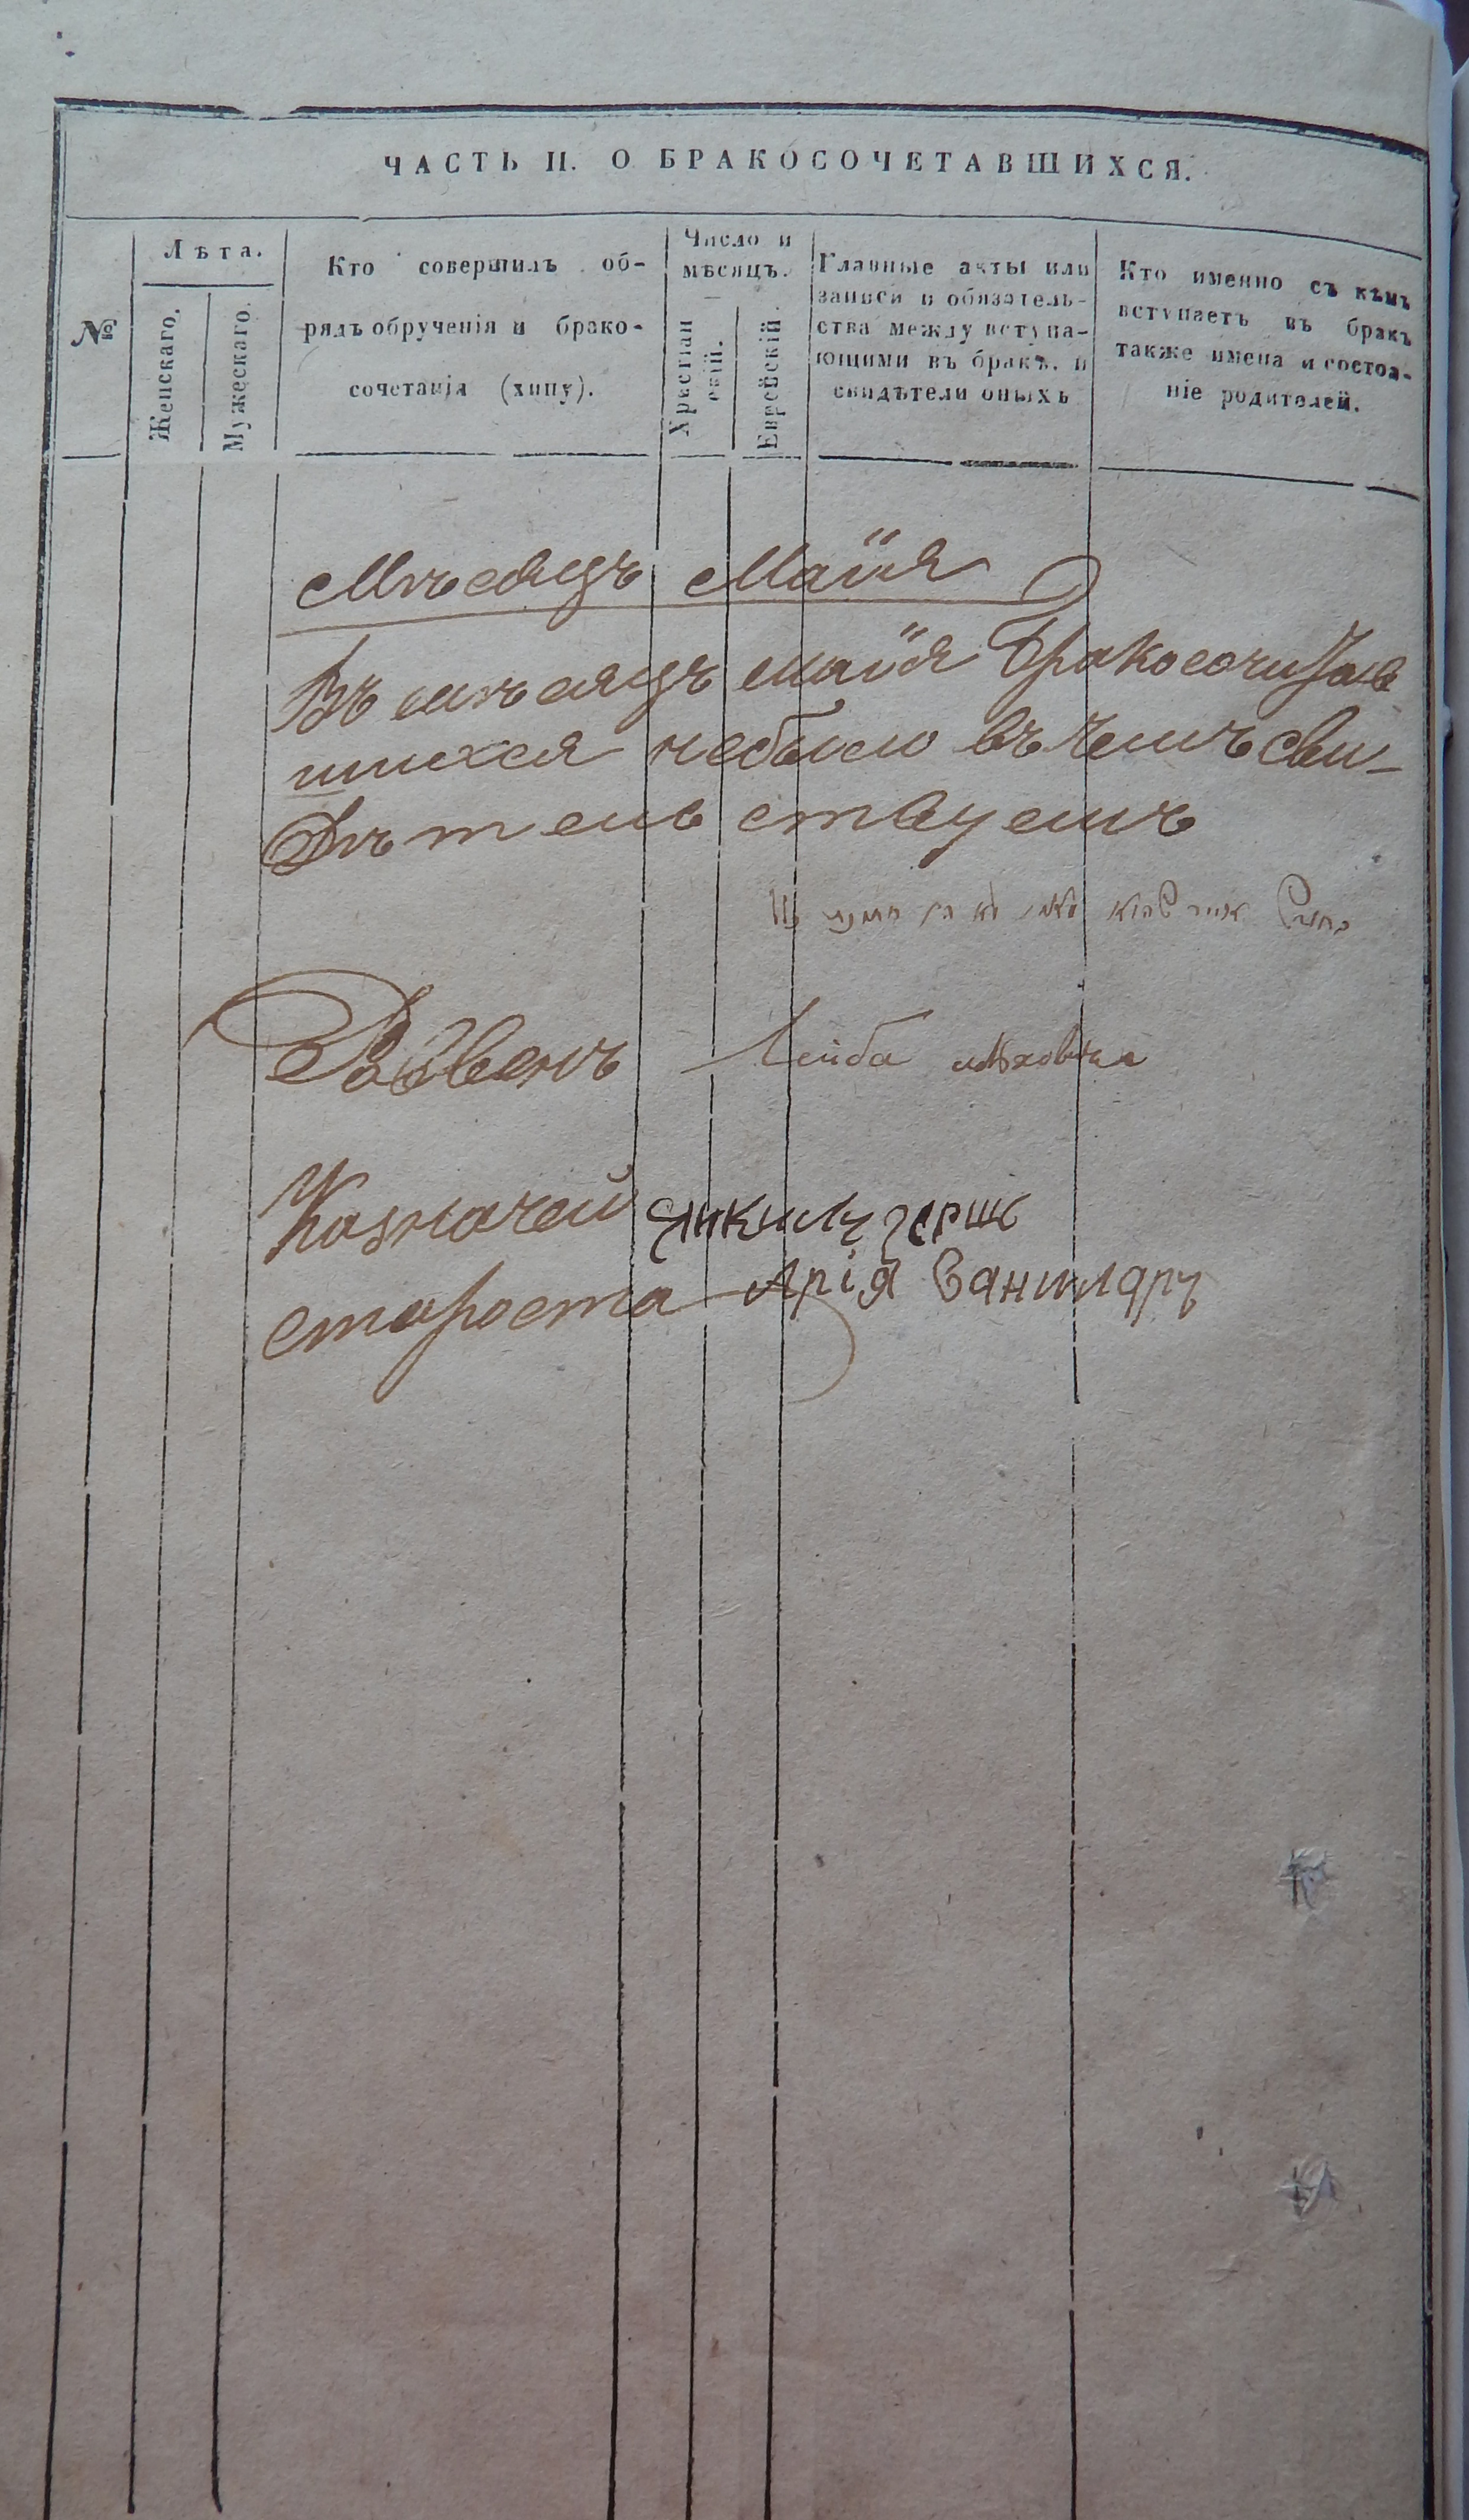 ЧАСТЬ II. О БРАКОСОЧЕТАВШИХСЯ.
№
Лѣта.
Женскаго.
Мужескаго.
Кто совершилъ об-
рядъ обрученія и брако-
сочетанія (хипу).
Число и
мѣсяцъ.
Христіан
скій.
Еврейскій.
Главные акты или
записи и обязатель-
ства между вступа-
ющими въ бракъ, и
свидѣтели оныхъ
Кто именно съ кѣмъ
вступаетъ въ бракъ
также имена и состоя-
ніе родителей.
Мѣсяцъ Маія
Въ мѣсяцъ маія Бракосочитав
шихся небыло въ чемъ сви-
дѣтельствуемъ
Раввенъ Лейба
Казначей герш
староста Арія